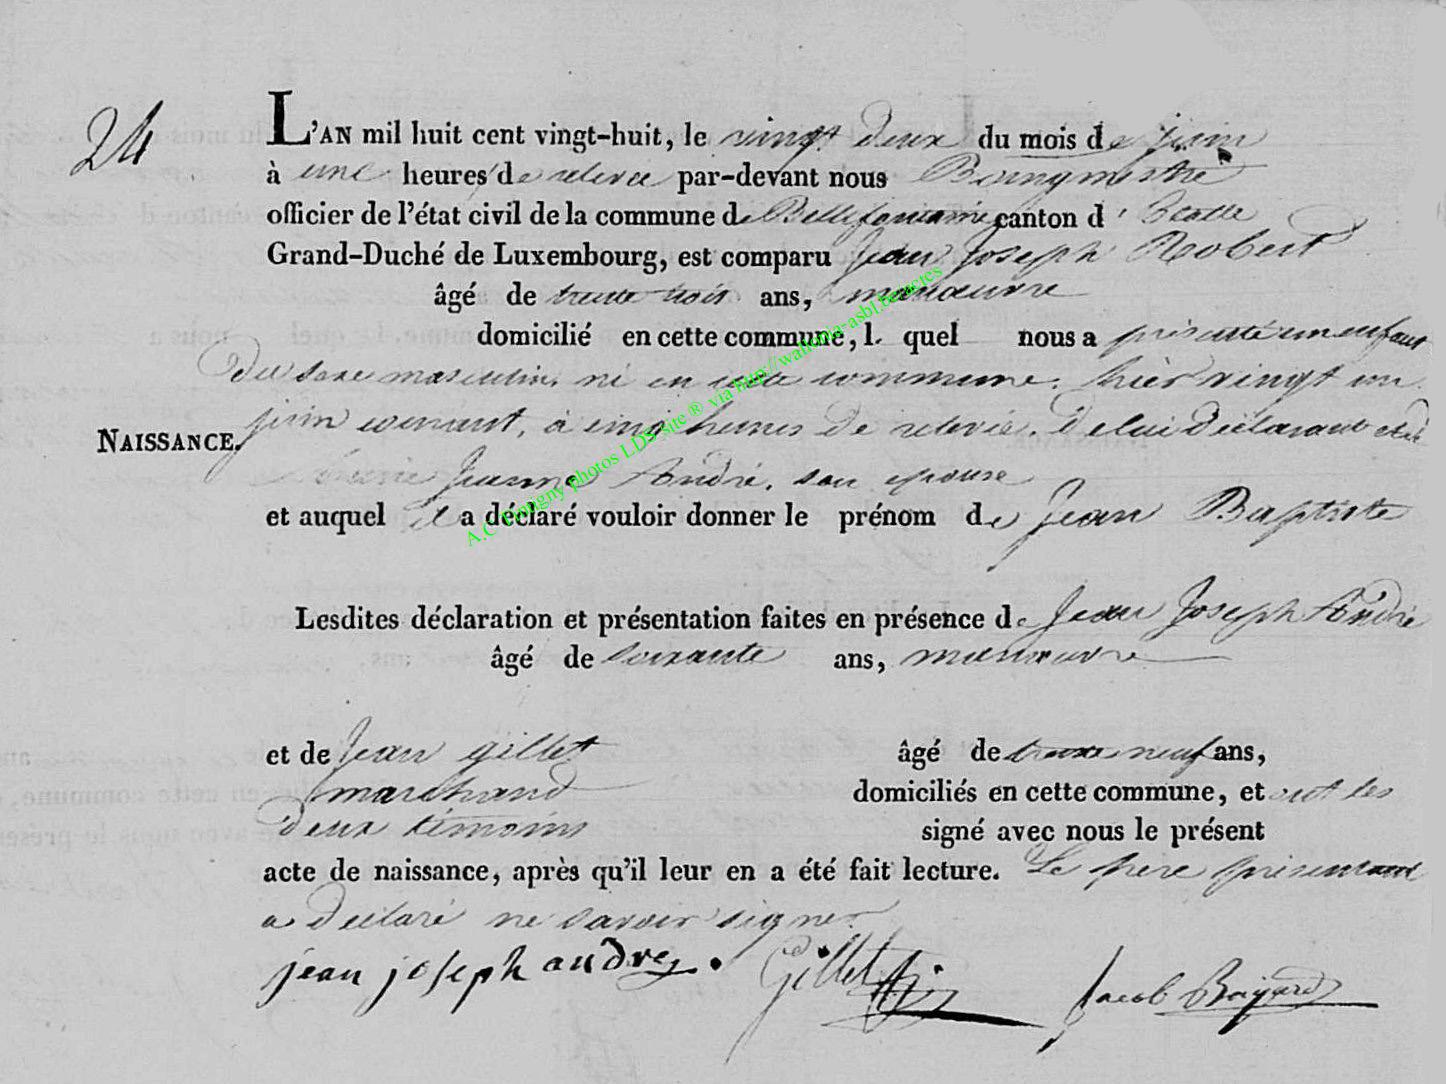 24
L'AN mil huit cent vingt-huit, le vingt deux du mois de juin
à une heures de relevée par-devant nous Bourgmestre
officier de l'état civil de la commune de Bellefontaine canton d'Etalle
Grand-Duché de Luxembourg, est comparu Jean Joseph Robert
âgé de trente trois ans, manœuvre
domicilié en cette commune, l quel nous a présenté un enfant
du sexe masculin, né en cette commune, hier vingt un
NAISSANCE.
juin courant, à cinq heures de relevée, de lui déclarant et de
Marie Jeanne André, son epouse
et auquel il a déclaré vouloir donner le prénom de Jean Baptiste
Lesdites déclaration et présentation faites en présence de Jean Joseph André
âgé de soixante ans, manœuvre
et de Jean Gillet âgé de trente neuf ans,
marchand domiciliés en cette commune, et ont les
deux témoins signé avec nous le présent
acte de naissance, après qu'il leur en a été fait lecture. Le père présentant
a déclaré ne savoir signer
jean joseph andre Gillet Jacob Bayard
A.C. Tintigny photos LDS site ® via http://wallonia-asbl.be/actes